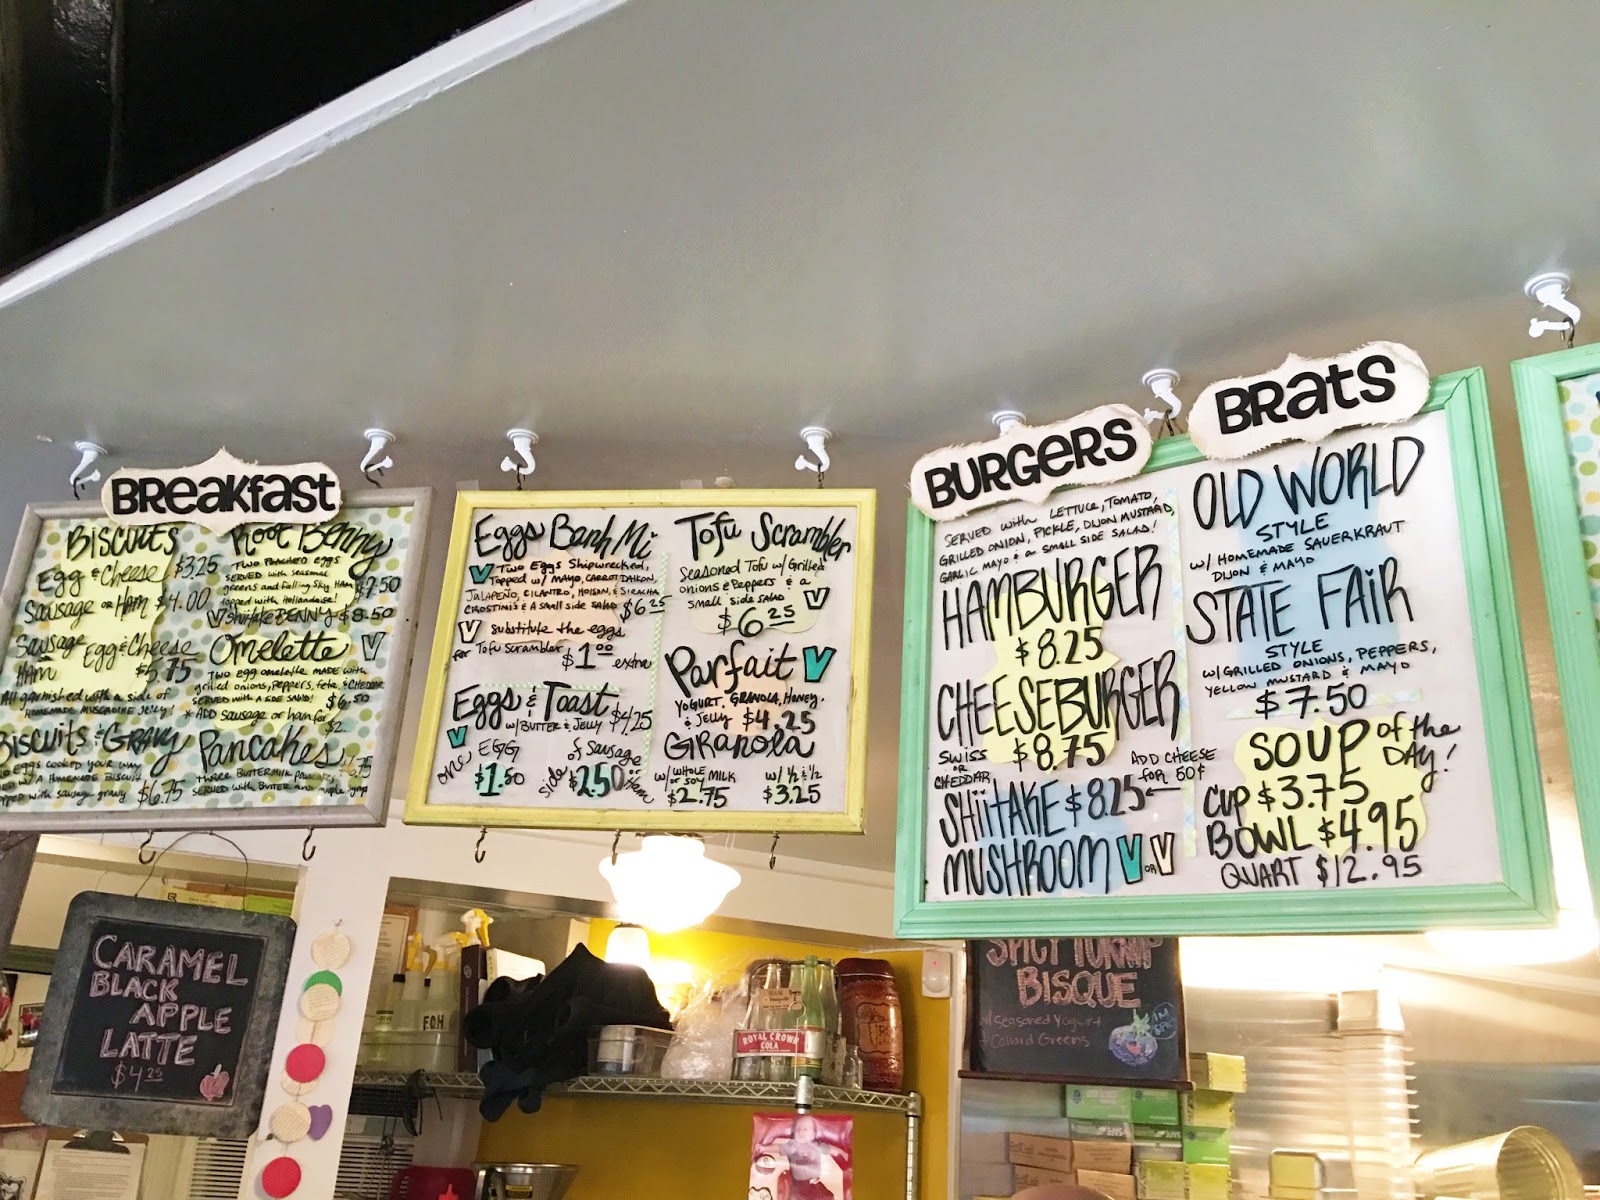 BREAKFAST
BISCUITS
Egg & Cheese $3.25
Sausage or Ham $4.00
Sausage Egg & Cheese
Ham $5.75
All garnished with a side of
HOMEMADE MUSCADINE Jelly!
Biscuits & GRAVY
eggs cooked your way
w/ A HOMEMADE BISCUIT
topped with sausage gravy $6.75
Root Benny
TWO POACHED EGGS
SERVED with seasonal
greens and Falling Sky HAM
topped with Hollandaise! $7.50
V Shiitake BENNY $8.50
Omelette V
TWO egg omelette made with
grilled onions, Peppers, feta, & CHEDDAR
SERVED WITH A SIDE SALAD! $6.50
* ADD sausage or ham for
$2
Pancakes
THREE BUTTERMILK Pancakes
SERVED with BUTTER AND maple syrup
Eggs Banh Mi
V TWO Eggs Shipwrecked,
Topped w/ MAYO, CARROT, DAIKON,
JALAPEÑO, CILANTRO, HOISIN, & SIRACHA
CROSTINI'S & A SMALL SIDE SALAD $6.25
V substitute the eggs
for Tofu scrambler $1.00 extra
Eggs & Toast
w/ BUTTER & JELLY $4.25
V one EGG $1.50
side of Sausage or Ham $2.50
Tofu Scrambler
Seasoned Tofu w/ Grilled
onions & Peppers & a
small side SALAD V
$6.25
Parfait V
YOGURT, GRANOLA, HONEY,
& JELLY $4.25
GRanola
w/ WHOLE MILK or SOY $2.75
w/ ½ & ½ $3.25
BURGERS
SERVED with LETTUCE, TOMATO,
GRILLED ONION, PICKLE, DIJON MUSTARD,
GARLIC MAYO & a SMALL SIDE SALAD!
HAMBURGER
$8.25
CHEESEBURGER
SWISS or CHEDDAR $8.75
ADD CHEESE
for 50¢
SHIITAKE $8.25
MUSHROOM V OR V
BRATS
OLD WORLD
STYLE
w/ HOMEMADE SAUERKRAUT
DIJON & MAYO
STATE FAIR
STYLE
w/ GRILLED ONIONS, PEPPERS,
YELLOW MUSTARD & MAYO
$7.50
SOUP of the DAY!
CUP $3.75
BOWL $4.95
QUART $12.95
CARAMEL
BLACK
APPLE
LATTE
$4.25
F.O.H
ROYAL CROWN
COLA
SPICY TURNIP
BISQUE
w/ Seasoned Yogurt
+ Collard Greens